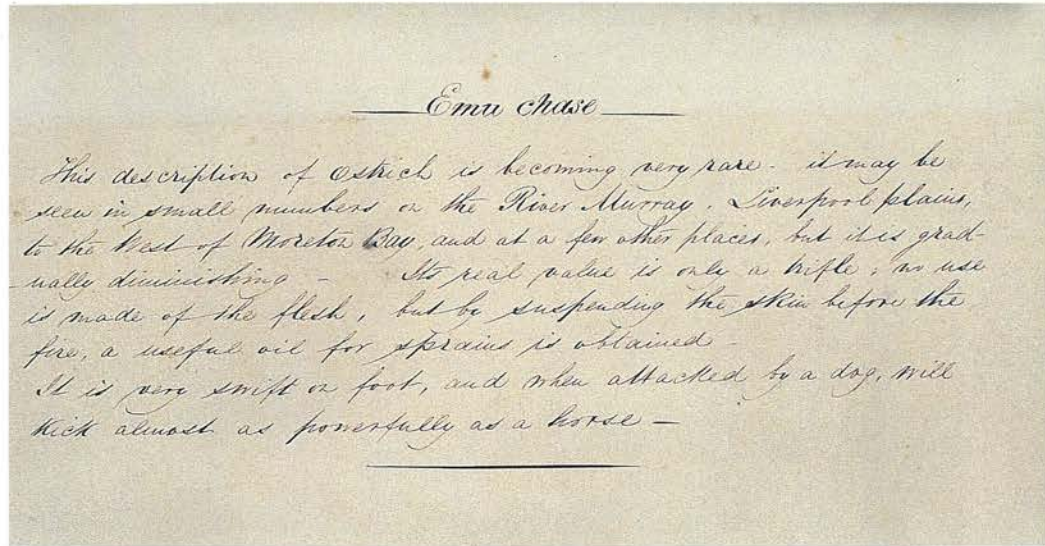 Emu chase
This description of Ostrich is becoming very rare - it may be
seen in small numbers on the River Murray, Liverpool plains,
to the West of Moreton Bay, and at a few other places, but it is grad-
-ually diminishing - Its real value is only a trifle; no use
is made of the flesh, but by suspending the skin before the
fire, a useful oil for sprains is obtained -
It is very swift on foot, and when attacked by a dog, will
kick almost as powerfully as a horse -